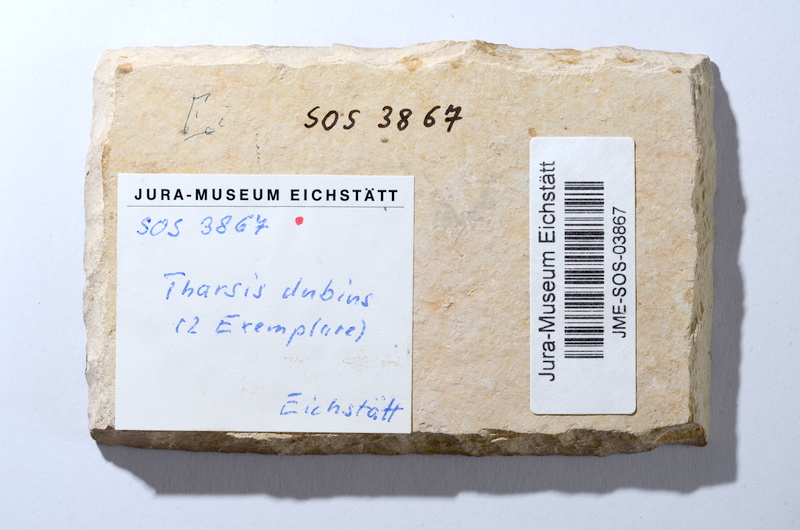 SOS 3867
JURA-MUSEUM EICHSTÄTT
SOS 3867
Tharsis dubius
(2 Exemplare)
Eichstätt
Jura-Museum Eichstätt
JME-SOS-03867